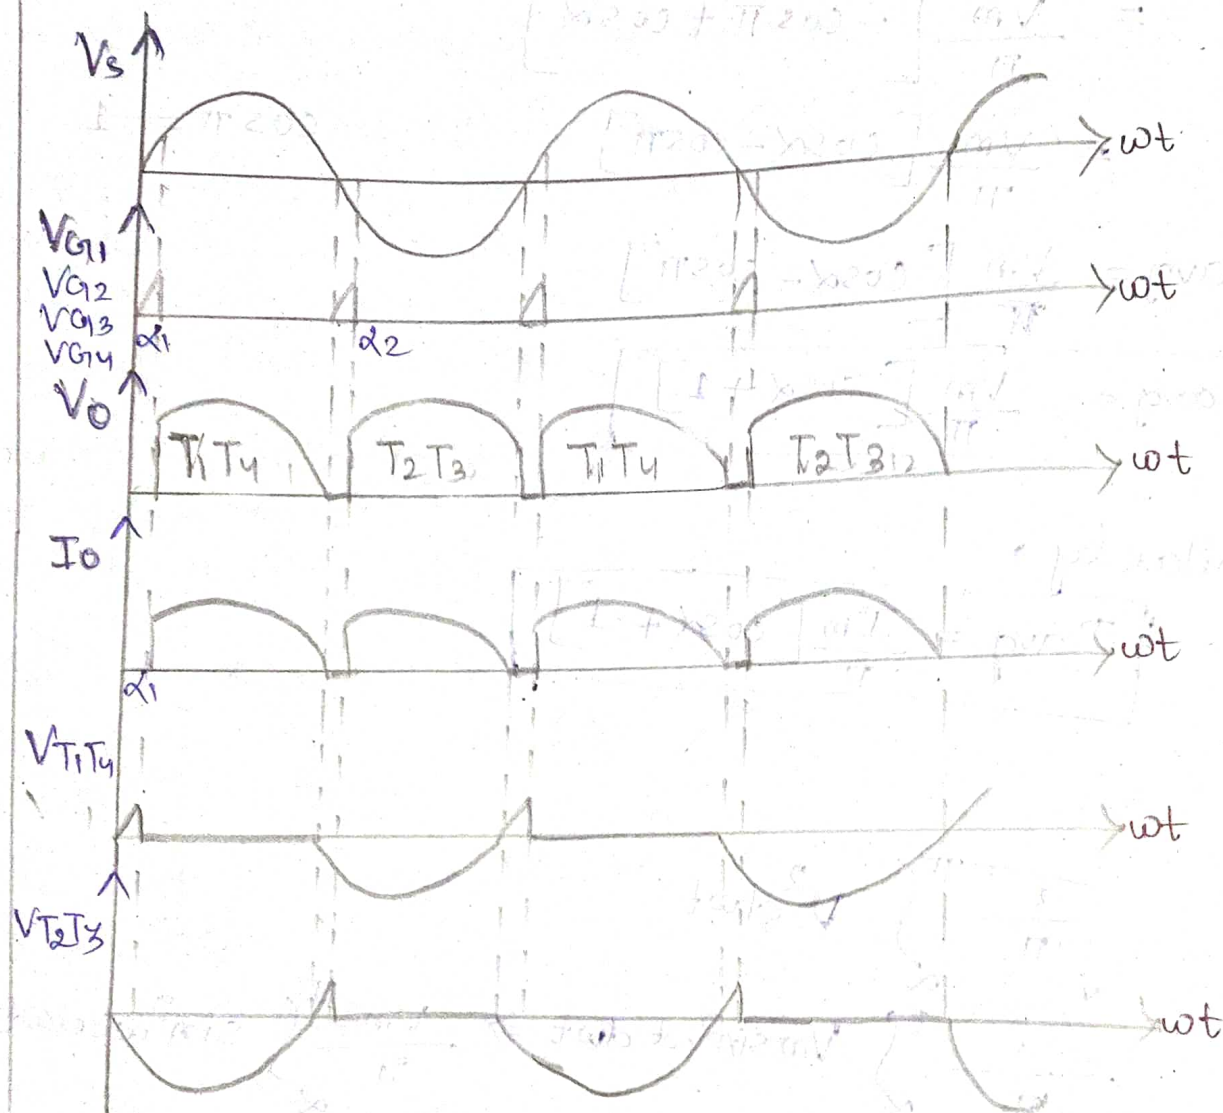 Vs
ωt
VG1
VG2
VG3
VG4
α1
α2
ωt
Vo
T1 T4
T2 T3
T1 T4
T2 T3
ωt
Io
α1
ωt
VT1T4
ωt
VT2T3
ωt